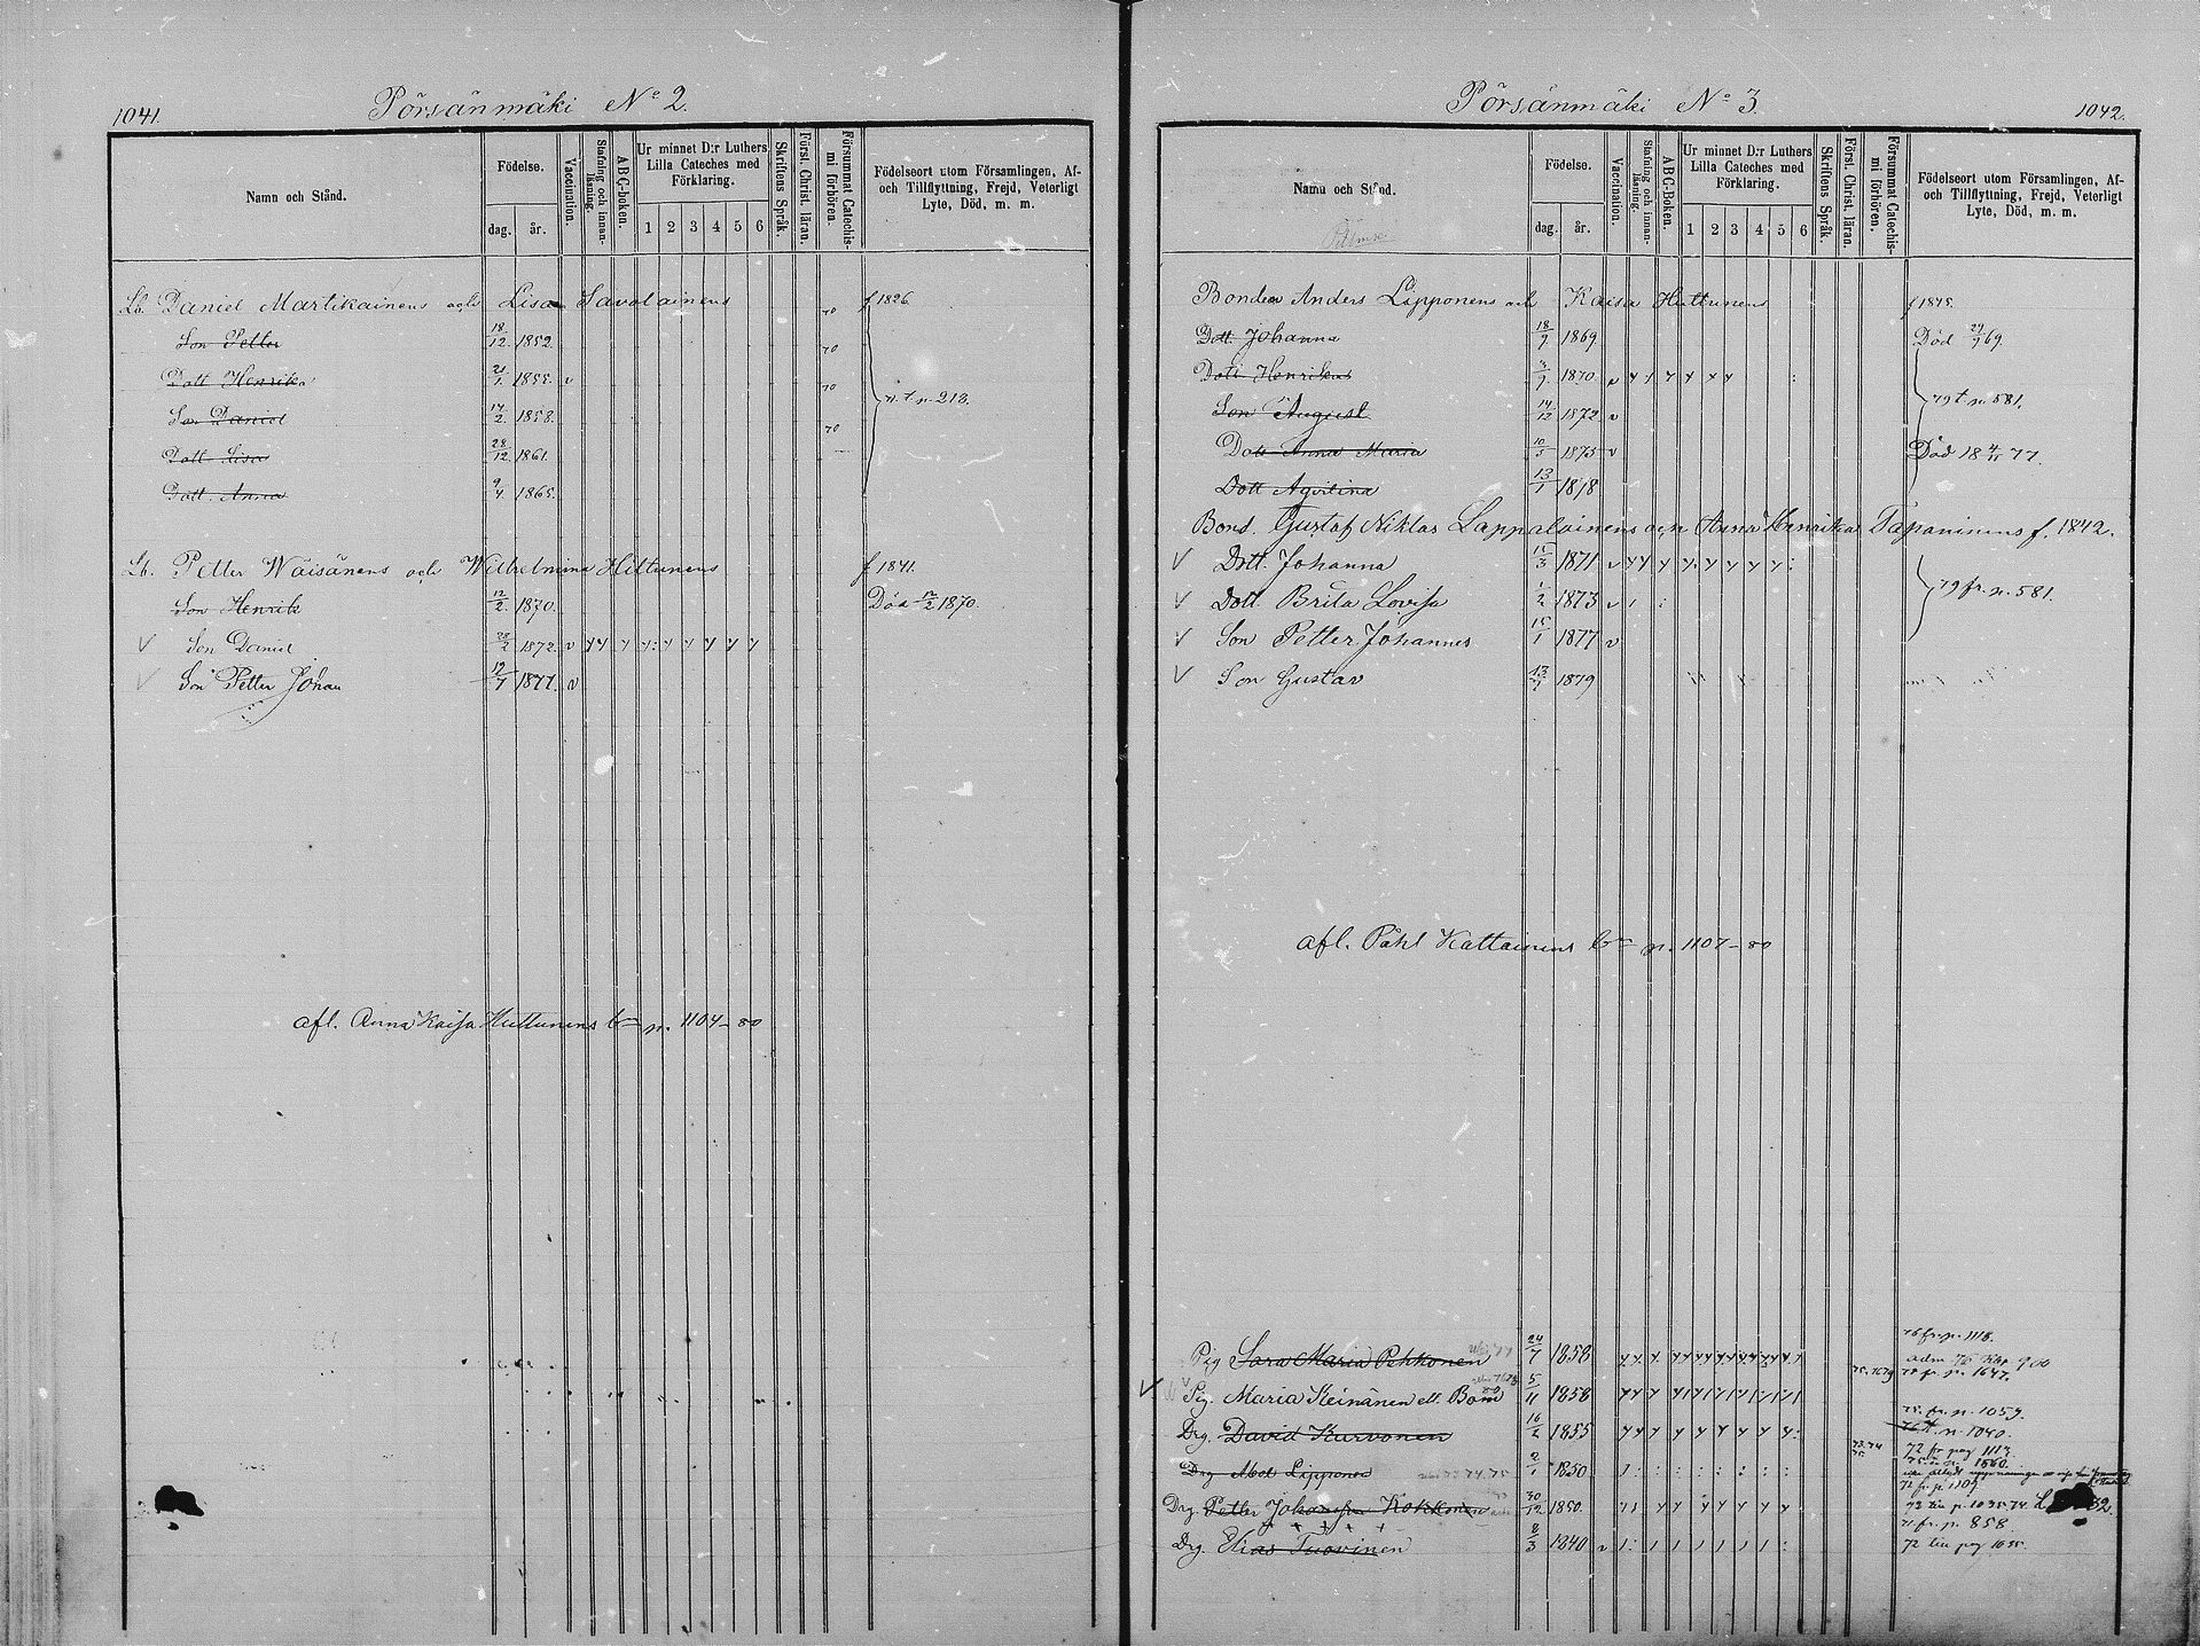 1041.
Pörsänmäki No 2.
Namn och Stånd.
Födelse.
dag.
år.
Vaccination.
Stafning och innanläsning.
ABC-boken.
Ur minnet D:r Luthers Lilla Cateches med Förklaring.
1 2 3 4 5 6
Skriftens Språk.
Först. Christ. läran.
Försummat Catechismi förhören.
Födelseort utom Församlingen, Af- och Tillflyttning, Frejd, Veterligt Lyte, Död, m. m.
Lb. Daniel Martikainens och Lisa Savolainens f 1826
Son Petter 18/12 1852. 70
Dott Henrika 21/1 1855. v 70
Son Daniel 14/2 1858. 70
Dott Lisa 28/12 1861. 70
Dott. Anna 9/4 1865.
n. t. p. 213.
Lb. Petter Wäisänens och Wilhelmina Hiltunens f 1841.
Son Henrik 12/2 1870. Död 12/2 1870.
Son Daniel 28/2 1872 v
Son Petter Johan 19/7 1877. v
afl. Anna Kaisa Huttunens bm p. 1104-80
Pörsänmäki No 3.
1042.
Namn och Stånd.
Födelse.
dag.
år.
Vaccination.
Stafning och innanläsning.
ABC-Boken.
Ur minnet D:r Luthers Lilla Cateches med Förklaring.
1 2 3 4 5 6
Skriftens Språk.
Först. Christ. läran.
Försummat Catechismi förhören.
Födelseort utom Församlingen, Af- och Tillflyttning, Frejd, Veterligt Lyte, Död, m. m.
Bonden Anders Lipponens och Kaisa Huttunens f 1845.
Dott. Johanna 18/9 1869 Död 29/9 69
Dott Henrika 1870 v
79 t. p. 581.
Son August 14/12 1872 v
Dott Anna Maria 10/5 1875 v Död 18 77.
Dott Agvilina 13/1 1878
Bond. Gustaf Niklas Lappalainens och Anna Henrika Tapaninens f. 1842.
Dott. Johanna 15/3 1871 v
Dott. Brita Lovisa 1/2 1873 v
79 fr. p. 581.
Son Petter Johannes 15/1 1877 v
Son Gustav 13/7 1879
afl. Påhl Kattainens bm p. 1107-80
76 fr. p. 1118.
Pig Sara Maria Pehkonen 24/7 1858
78 fr. p. 1647.
Pig. Maria Keinänen ell. Bom 5/11 1858
75. fr. p. 1059.
Drg. David Kurvonen 16/2 1855 p. 1040.
72 fr pag 1113
Drg Abel Lipponen 2/1 1850
72 fr. p. 1109
Drg. Petter Johansson Kokkonen 30/12 1850. 73 till p. 1035
71 fr. p. 858.
Drg. Elias Tuovinen 8/3 1840 v 72 till pag 1035.